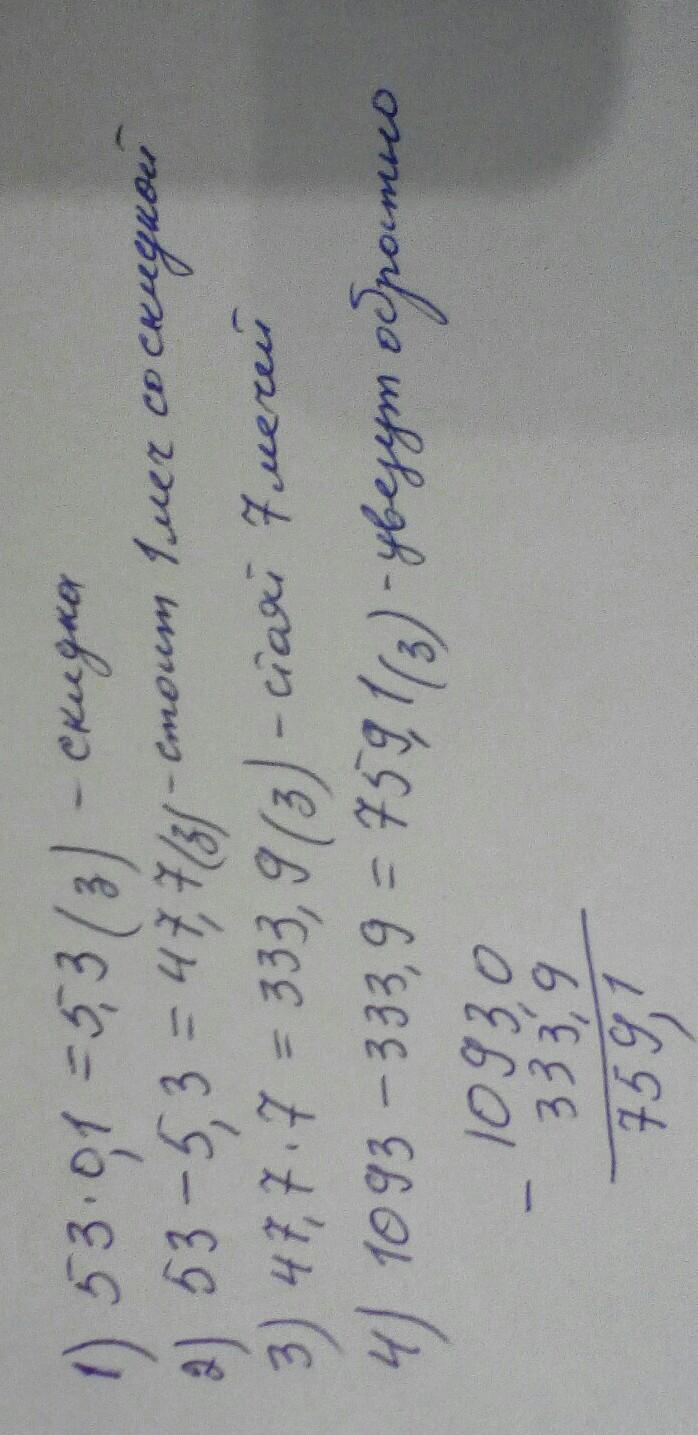 1) 53 · 0,1 = 5,3 (з) - скидка
2) 53 - 5,3 = 47,7 (з) - стоит 1 меч со скидкой
3) 47,7 · 7 = 333,9 (з) - стоят 7 мечей
4) 1093 - 333,9 = 759,1 (з) - увезут обратно
- 1093,0
333,9
759,1